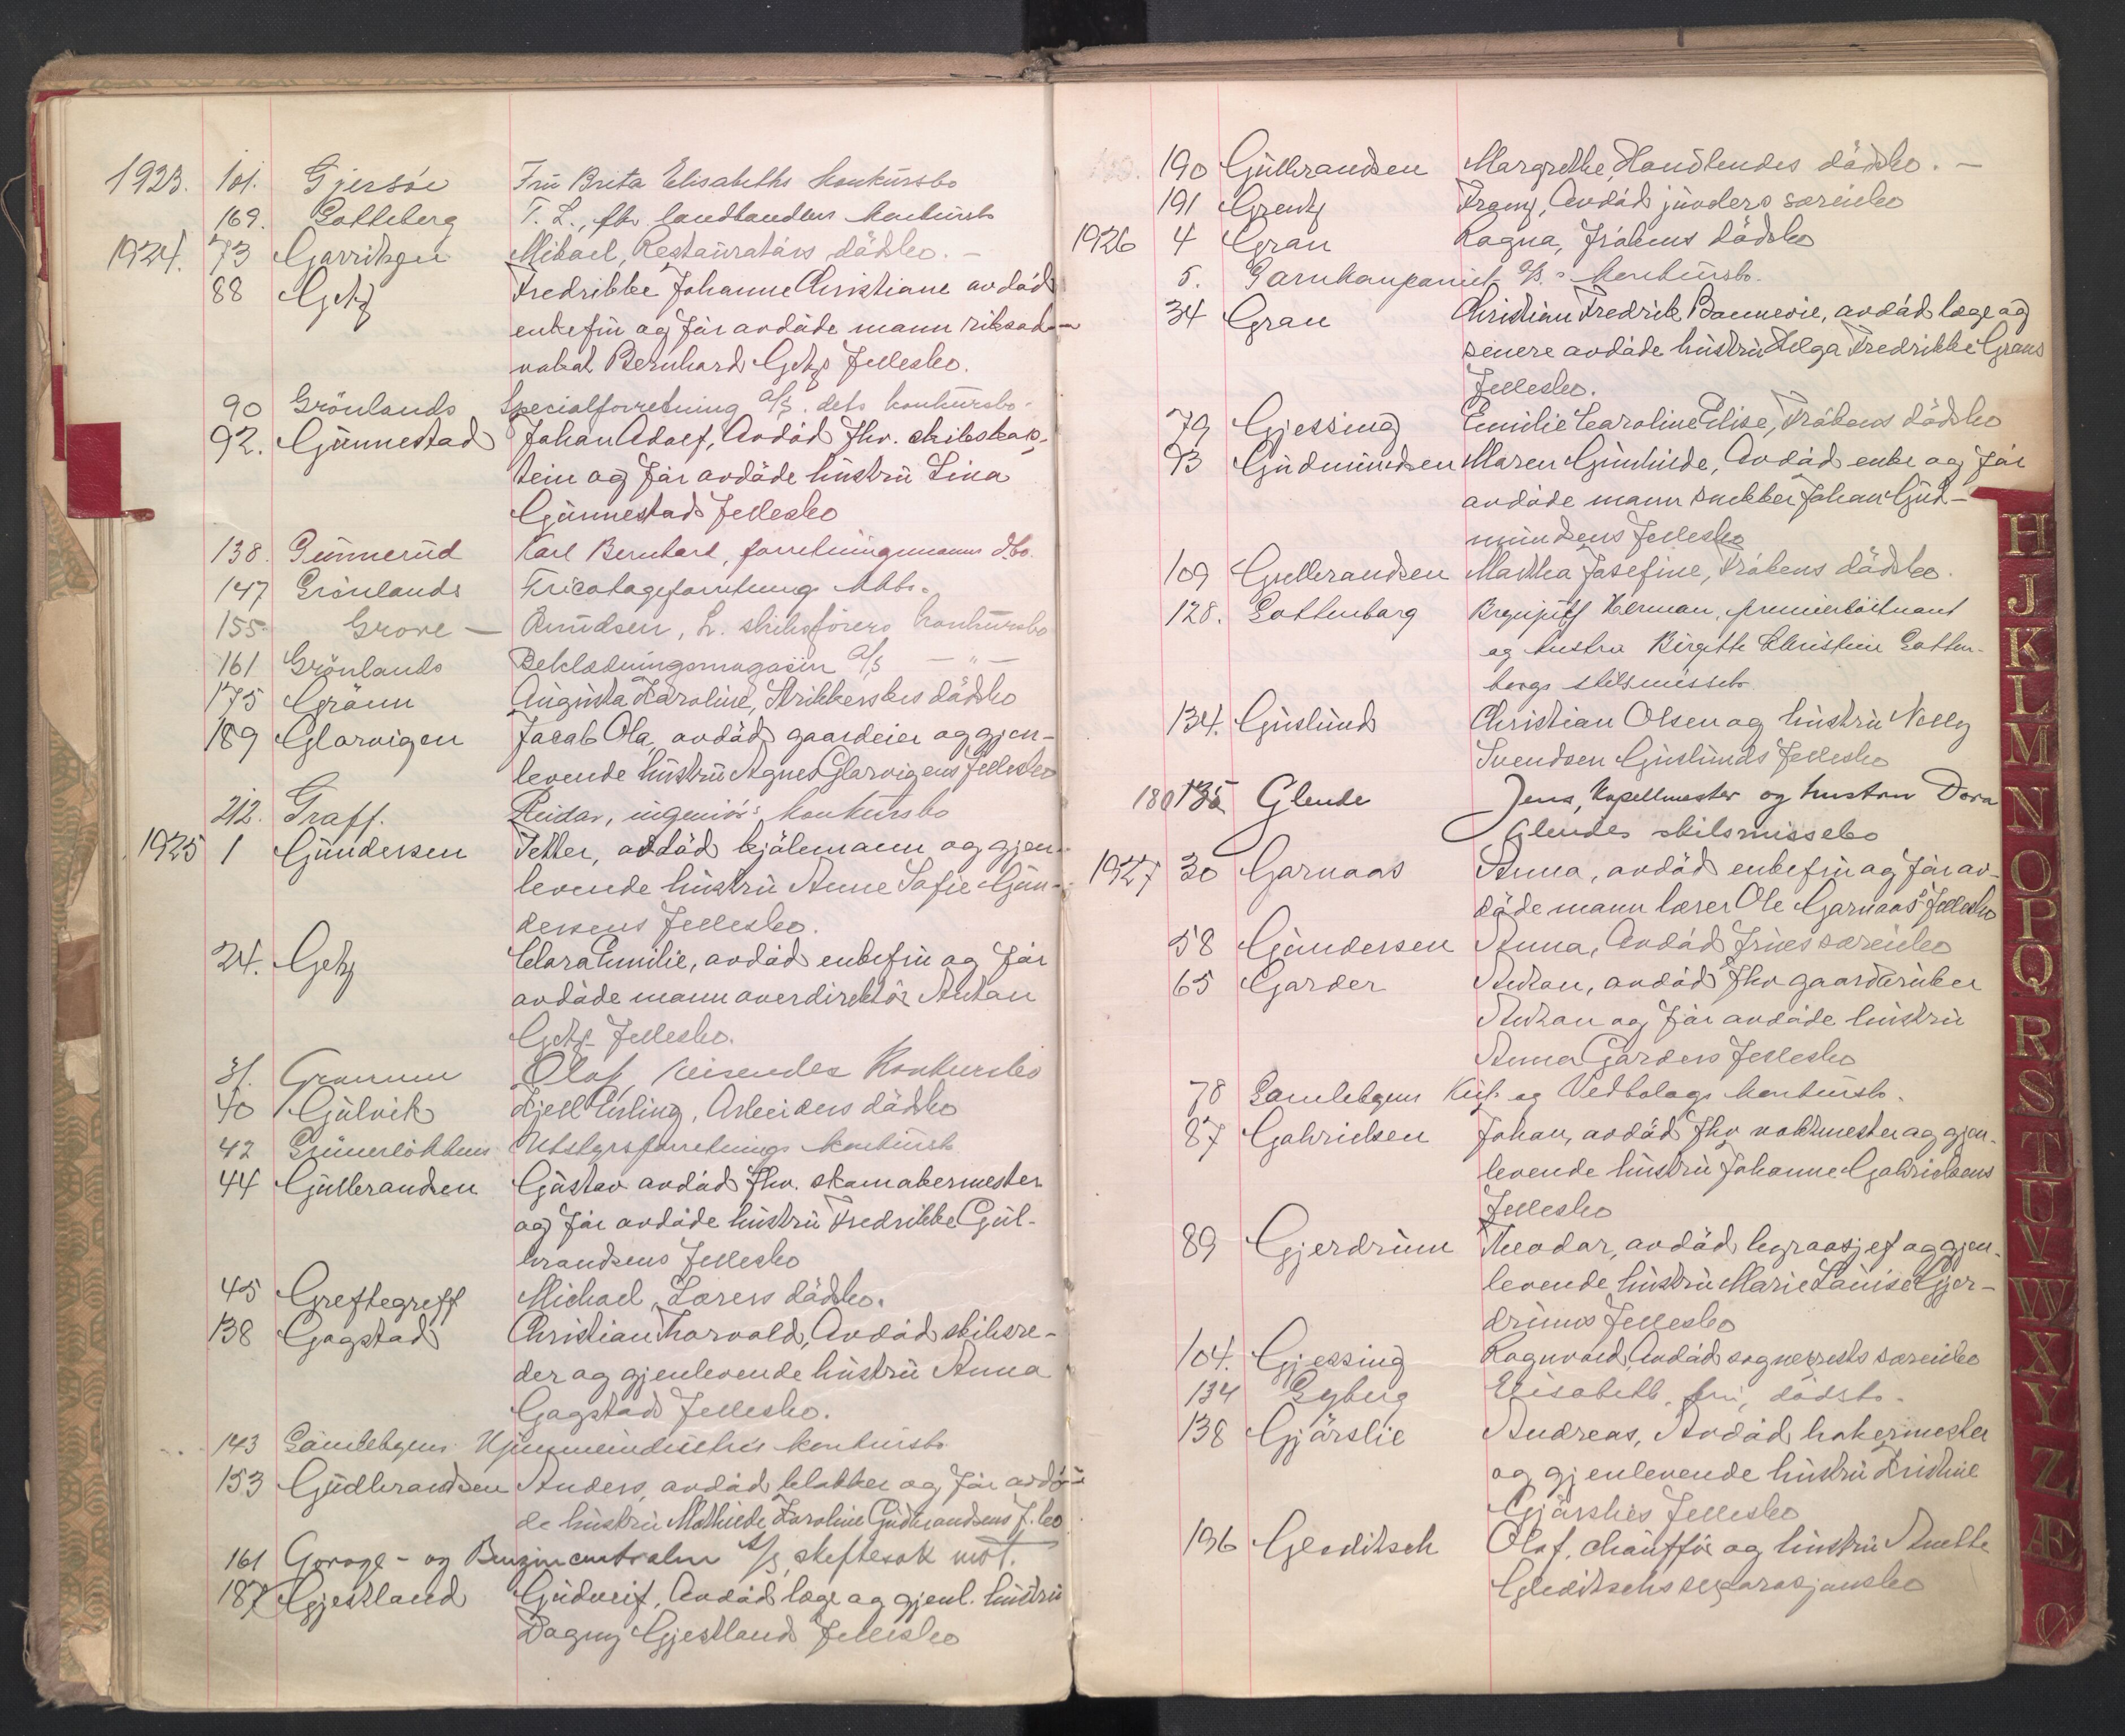 1923. 101. Gjersöe Fru Brita Elisabeths konkursbo
169. Gotteberg T. L., fhv. landhandlers konkursbo
1924. 73 Garritzen Mikael, Restauratörs dödsbo. —
88 Getz Fredrikke Johanne Christiane avdöd
enkefru og før avdøde mann riksad-
vokat Bernhard Getz' fellesbo.
90 Grönlands Specialforretning A/S. dets konkursbo.
92. Gunnestad Johan Adolf, Avdöd fhv. skibskap-
tein og før avdøde hustru Lina
Gunnestads fellesbo
138. Gunnerud Karl Bernhard, forretningsmanns dbo.
147 Grönlands Tricotageforretning kbo.
155. Grove — Knudsen, L. skibsførers konkursbo
161 Grönlands Beklædningsmagasin A/S — " —
175 Grönn Augusta Karoline, Strikkerskes dödsbo
189 Glarvigen Jacob Ola, avdöd gaardeier og gjen-
levende hustru Agnes Glarvigens fellesbo
212. Graff. Reidar, ingeniörs konkursbo
1925 1 Gundersen Petter, avdöd kjölemann og gjen-
levende hustru Anne Sofie Gun-
dersens fellesbo.
24. Getz Clara Emilie, avdöd enkefru og før
avdøde mann overdirektör Anton
Getz fellesbo.
31. Grammm Olaf, reisendes Konkursbo
40 Gulvik Kjell Erling, Arbeiders dödsbo
42 Grünerlökkens Utstyrsforretnings konkursbo
44 Gulbrandsen Gustav avdöd fhv. skomakermester
og før avdøde hustru Fredrikke Gul-
brandsens fellesbo
45 Greftegreff Michael, Lærers dödsbo.
138 Gogstad Christian Thorvald, Avdöd skibsre-
der og gjenlevende hustru Anna
Gogstads fellesbo.
143 Gamlebyens konkursbo
153 Gudbrandsen Anders, avdöd klokker og før avdø-
de hustru Mathilde Karoline Gudbrandsens f.bo
161 Garage- og Benzincentralen A/S skiftesak mot.
187 Gjestland Gudleif, Avdöd læge og gjenl. hustru
Dagny Gjestlands fellesbo
190 Gulbrandsen Margrethe, Handlendes dödsbo. —
191 Grentz Franz, Avdöd junders særeiebo
1926 4 Gran Ragna, frökens dödsbo
5. Garnkompaniet A/S.s konkursbo.
34 Gran Christian Fredrik Bonnevie, avdöd læge og
senere avdøde hustru Helga Fredrikke Grans
fellesbo.
79 Gjessing Emilie Caroline Elise, Frökens dödsbo
93 Gudmundsen Maren Gunhilde, Avdöd enke og før
avdøde mann snekker Johan Gud-
mundsens fellesbo
109 Gulbrandsen Martha Josefine, Frökens dödsbo.
128. Gottenborg Brynjulf Herman, premierlöitnant
og hustru Birgitte Christine Gotten-
borgs skilsmissebo
134. Guslund Christian Olsen og hustru Nelly
Svendsen Guslunds fellesbo
180 135 Glende Jens, Kapellmester og hustru Dora
Glendes skilsmissebo
1927 30 Garnaas Anna, avdöd enkefru og før av-
døde mann lærer Ole Garnaas' fellesbo
58 Gundersen Anna, Avdöd frues særeiebo
65 Garder Anton, avdöd fhv gaardbruker
Anton og før avdøde hustru
Anna Garders fellesbo
78 Gamlebyens Kul- og Vedbolags konkursbo.
87 Gabrielsen Johan, avdöd fhv vaktmester og gjen-
levende hustru Johanne Gabrielsens
fellesbo
89 Gjerdrum Theodor, avdöd byraasjef og gjen-
levende hustru Marie Louise Gjer-
drums fellesbo
104. Gjessing Ragnvald, Avdöd sogneprests særeiebo
134 Gyberg Elisabeth, fru, dödsbo.
138 Gjärslie Andreas, Avdöd bakermester
og gjenlevende hustru Kristine
Gjärslies fellesbo
196 Gleditsch Olaf, chauffør og hustru Anette
Gleditschs separasjonsbo
H
J
K
L
M
N
O
P
Q
R
S
T
U
V
W
X
Y
Z
Æ
Ø